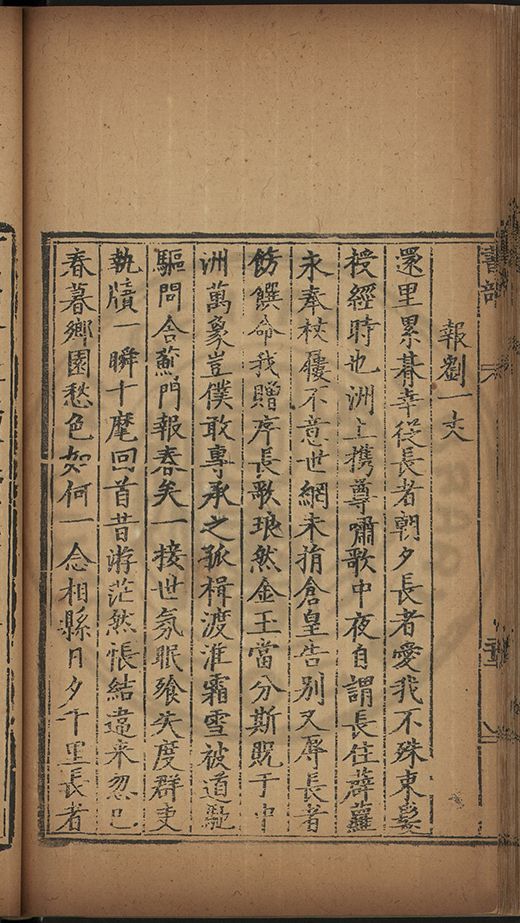 報劉一丈
還里累朞幸從長者朝夕長者愛我不殊束髮
授經時也洲上携尊嘯歌中夜自謂長住薜蘿
永奉杖屨不意世網未捐倉皇告別又辱長者
飭饌命我贈序長歌琅然金玉當分斯貺于中
洲萬象豈僕敢專承之孤楫渡淮霜雪被道
驅問舍薊門報春矣一接世氛眠飱失度群吏
執牘一瞬十麾回首昔游茫然悵結違来忽已
春暮鄉園愁色如何一念相縣月夕千里長者